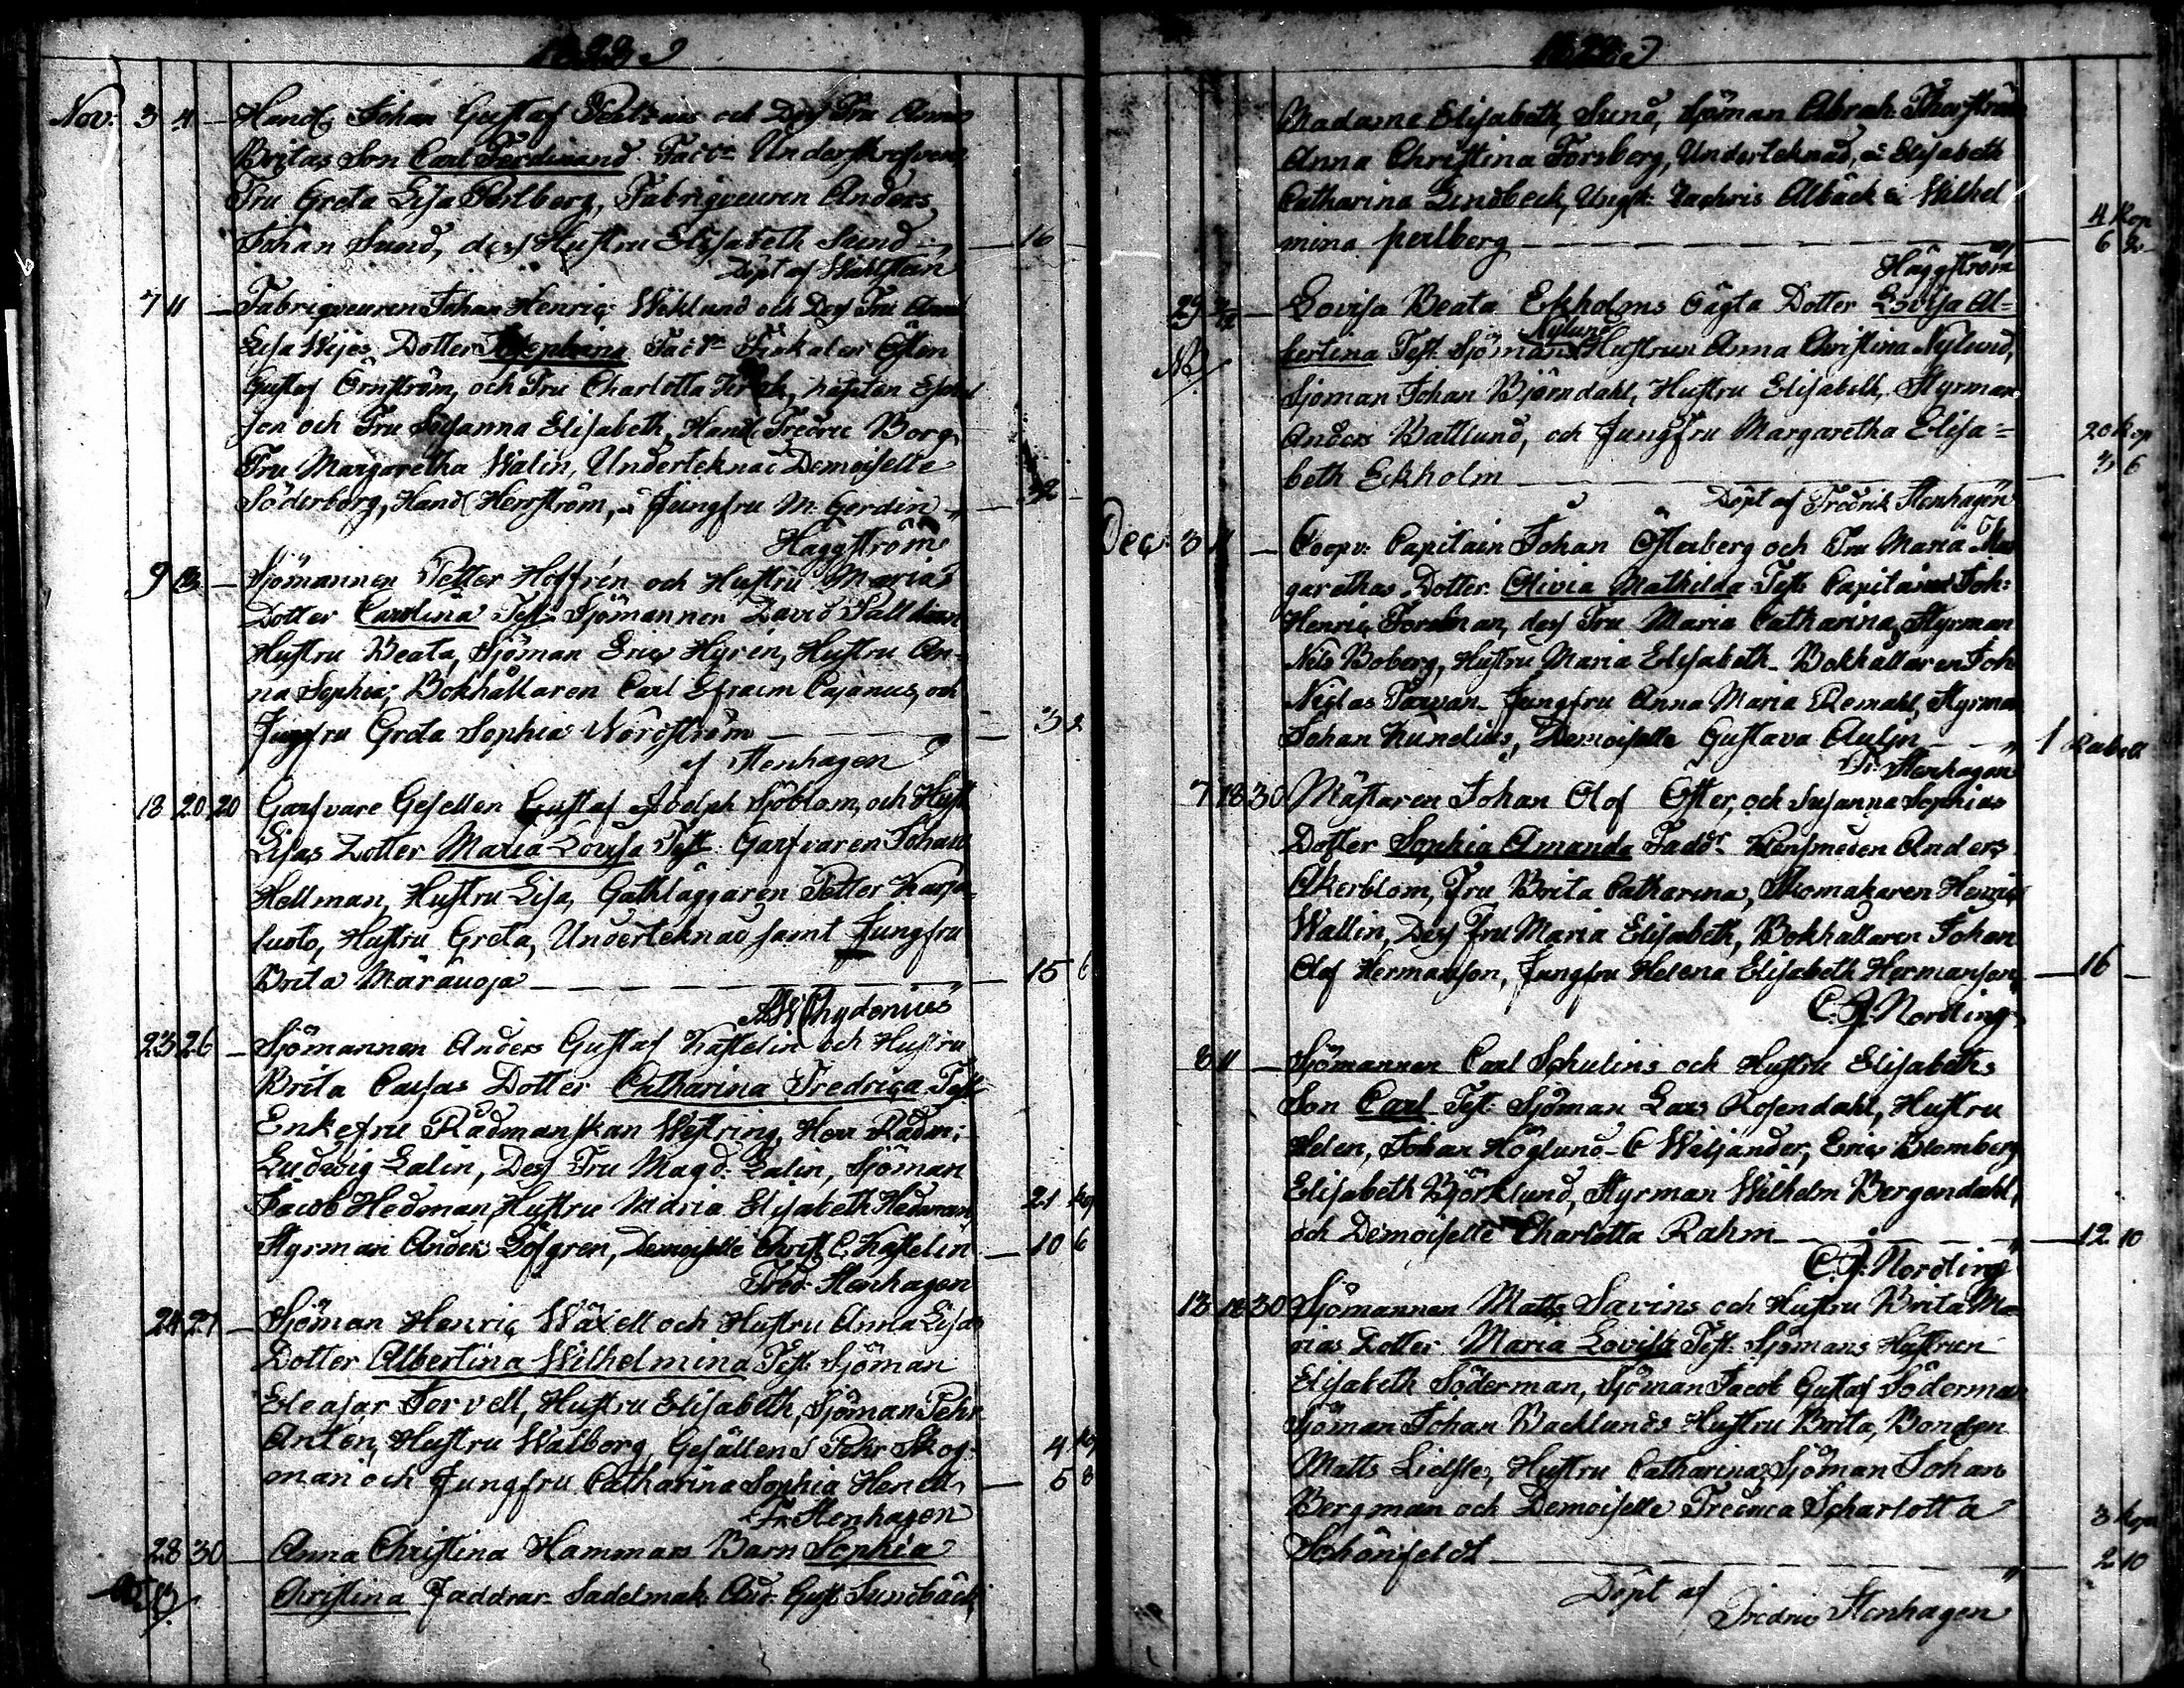 1828
Nov: 3 4 — Handl. Johan Gustaf och Dess Fru Anna
Britas Son Carl Ferdinand. Fadd:
Fru Greta Lisa Perlberg, Fabriqueuren Anders
Johan Sund, dess Hustru Elisabeth Sund — 16 —
Döpt af Wahlstein
7 11 — Fabriqueuren Johan Henric Wiklund och Dess Fru Anna
Lisa Wijos Dotter Josephina Fadr Fiskalen Östen
Gustaf Örnström, och Fru Charlotta Kapiten
son och Fru Susanna Elisabeth, Handl Fredric Borg,
Fru Margaretha Walin, Underteknad Demoiselle
Söderborg, Handl Herrström, Jungfru M. Gerdin — 32 —
Häggström
9 13 — Sjömannen Petter Hoffrén och Hustru Marias
Dotter Carolina Test: Sjömannen David
Hustru Beata, Sjöman Eric Hyrén, Hustru An-
na Sophia, Bokhållaren Carl Efraim Cajanus, och
Jungfru Greta Sophia Nordström — 3 2
af Stenhagen
18 20 20 Garfvare Gesellen Gustaf Adolph Sjöblom, och Hust
Lisas Dotter Maria Lovisa Test: Garfvaren Johan
Hellman, Hustru Lisa, Gathläggaren Petter Karja-
luoto, Hustru Greta, Underteknad samt Jungfru
Brita Märäuoja — 15 6
Chydenius
23 26 — Sjömannen Anders Gustaf Kastelin och Hustru
Brita Caisas Dotter Catharina Fredrica Test
Enkefru Rådmanskan Westring, Herr Rådm:
Ludvig Lalin, Dess Fru Magd: Lalin, Sjöman
Jacob Hedman, Hustru Maria Elisabeth Hedman, 21 kop
Styrman Anders Löfgren, Demoiselle Christ. C. Kastelin — 10 6
Fred: Stenhagen
24 27 — Sjöman Henric Wäxell och Hustru Anna Lisas
Dotter Albertina Wilhelmina Test: Sjöman
Eleasar Forvell, Hustru Elisabeth, Sjöman Pehr
Antén, Hustru Walborg, Gesällen Pehr Skog- 4 kop
man och Jungfru Catharina Sophia — 5 8
Fr: Stenhagen
28 30 — Anna Christina Hammars Barn Sophia
Christina Faddrar Sadelmak: And: Gust: Sundbäck,
1828
Madame Elisabeth Sund, Sjöman Abrah: Thorström
Anna Christina Forsberg, Underteknad, o Elisabeth
Catharina Lindbeck, Ungk: Zachris Albäck o Wilhel 4 Kop
mina perlberg — 6 2
Häggström
29 — Lovisa Beata Ekholms Oägta Dotter Lovisa Al-
NB bertina Test: Sjöman Nylund Hustrun Anna Christina Nylund,
Sjöman Johan Björndahl, Hustru Elisabeth, Styrman
Anders Battlund, och Jungfru Margaretha Elisa- 20 kop
beth Eckholm — 3 6
Döpt af Fredrik Stenhagen
Dec: 3 11 — Coopv: Capitain Johan Österberg och Fru Maria Mar
garethas Dotter Olivia Mathilda Test: Capitain Joh:
Henric Forsman, dess Fru Maria Catharina, Styrman
Nils Boberg, Hustru Maria Elisabeth. Bokhållaren Joh
Niclas Jungfru Anna Maria Remahl, Styrman
Johan Kunelius, Demoiselle Gustava Aulin — 1 Rubell
Fr: Stenhagen
7 18 30 Mästaren Johan Olof Öster, och Susanna Sophias
Dotter Sophia Amanda Faddr Klensmeden Anders
Åkerblom, Fru Brita Catharina, Skomakaren Henric
Wallin, Dess Fru Maria Elisabeth, Bokhållaren Johan
Olof Hermanson, Jungfru Helena Elisabeth Hermanson — 16 —
C. J. Nordling
8 11 — Sjömannen Carl Schulins och Hustru Elisabeths
Son Carl Test: Sjöman Lars Rosendahl, Hustru
Helen, Johan Höglund- C Wiljander, Eric Blomberg
Elisabeth Björklund, Styrman Wilhelm Bergendahl,
och Demoiselle Charlotta Rahm — 12 10
C. J. Nordling
13 18 30 Sjömannen Matts Savins och Hustru Brita Ma-
rias Dotter Maria Lovisa Test: Sjömans Hustrun
Elisabeth Söderman, Sjöman Jacob Gustaf Söderman
Sjöman Johan Backlunds Hustru Brita, Bonden
Matts Hustru Catharina, Sjöman Johan
Bergman och Demoiselle Fredrica Scharlotta 3 kop
Schönfeldt — 2 10
Döpt af
Fredric Stenhagen